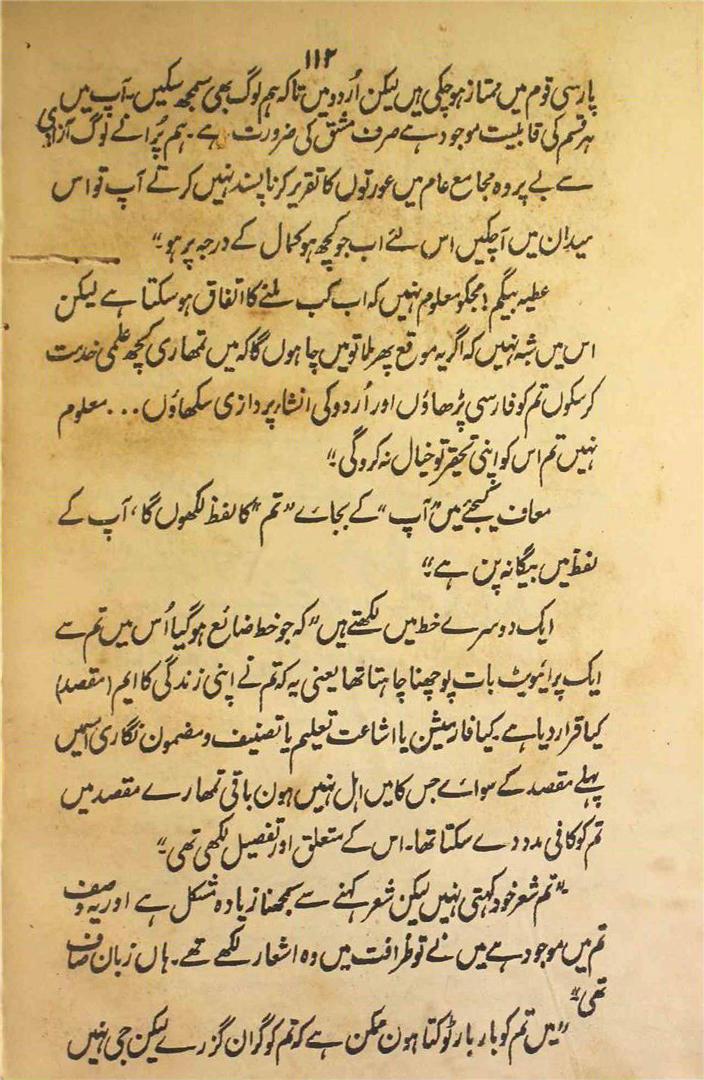 ۱۱۲
پارسی قوم میں ممتاز ہوچکی ہیں لیکن اُردو میں تاکہ ہم لوگ بھی سمجھ سکیں۔ آپ میں
ہر قسم کی قابلیت موجود ہے صرف مشق کی ضرورت ہے۔ ہم پُرانے لوگ آزادی
سے بے پردہ مجامع عام میں عورتوں کا تقریر کرنا پسند نہیں کرتے آپ تو اس
میدان میں آچکیں اس لئے اب جو کچھ ہو کمال کے درجہ پر ہو۔"
عطیہ بیگم! مجکو معلوم نہیں کہ اب کب ملنے کا اتفاق ہوسکتا ہے لیکن
اس میں شبہ نہیں کہ اگر یہ موقع پھر ملا تو میں چاہوں گا کہ میں تمھاری کچھ علمی خدمت
کرسکوں تم کو فارسی پڑھاؤں اور اُردو کی انشاء پردازی سکھاؤں ... معلوم
نہیں تم اس کو اپنی تحقیر تو خیال نہ کروگی۔"
معاف کیجئے میں "آپ" کے بجائے "تم" کا لفظ لکھوں گا، آپ کے
لفظ میں بیگانہ پن ہے۔"
ایک دوسرے خط میں لکھتے ہیں "کہ جو خط ضائع ہوگیا اُس میں تم سے
ایک پرائیوٹ بات پوچھنا چاہتا تھا یعنی یہ کہ تم نے اپنی زندگی کا ایم (مقصد)
کیا قرار دیا ہے۔ کیا فارمیشن یا اشاعت تعلیم یا تصنیف و مضمون نگاری اسمیں
پہلے مقصد کے سوائے جس کا میں اہل نہیں ہون باقی تمھارے مقصد میں
تم کو کافی مدد دے سکتا تھا۔ اس کے متعلق اور تفصیل لکھی تھی۔"
"تم شعر خود کہتی نہیں لیکن شعر کہنے سے سمجھنا زیادہ مشکل ہے اور یہ وصف
تم میں موجود ہے میں نے تو ظرافت میں وہ اشعار لکھے تھے۔ ہاں زبان صاف
تھی۔"
"میں تم کو بار بار ٹوکتا ہون ممکن ہے کہ تم کو گران گزرے لیکن جی نہیں